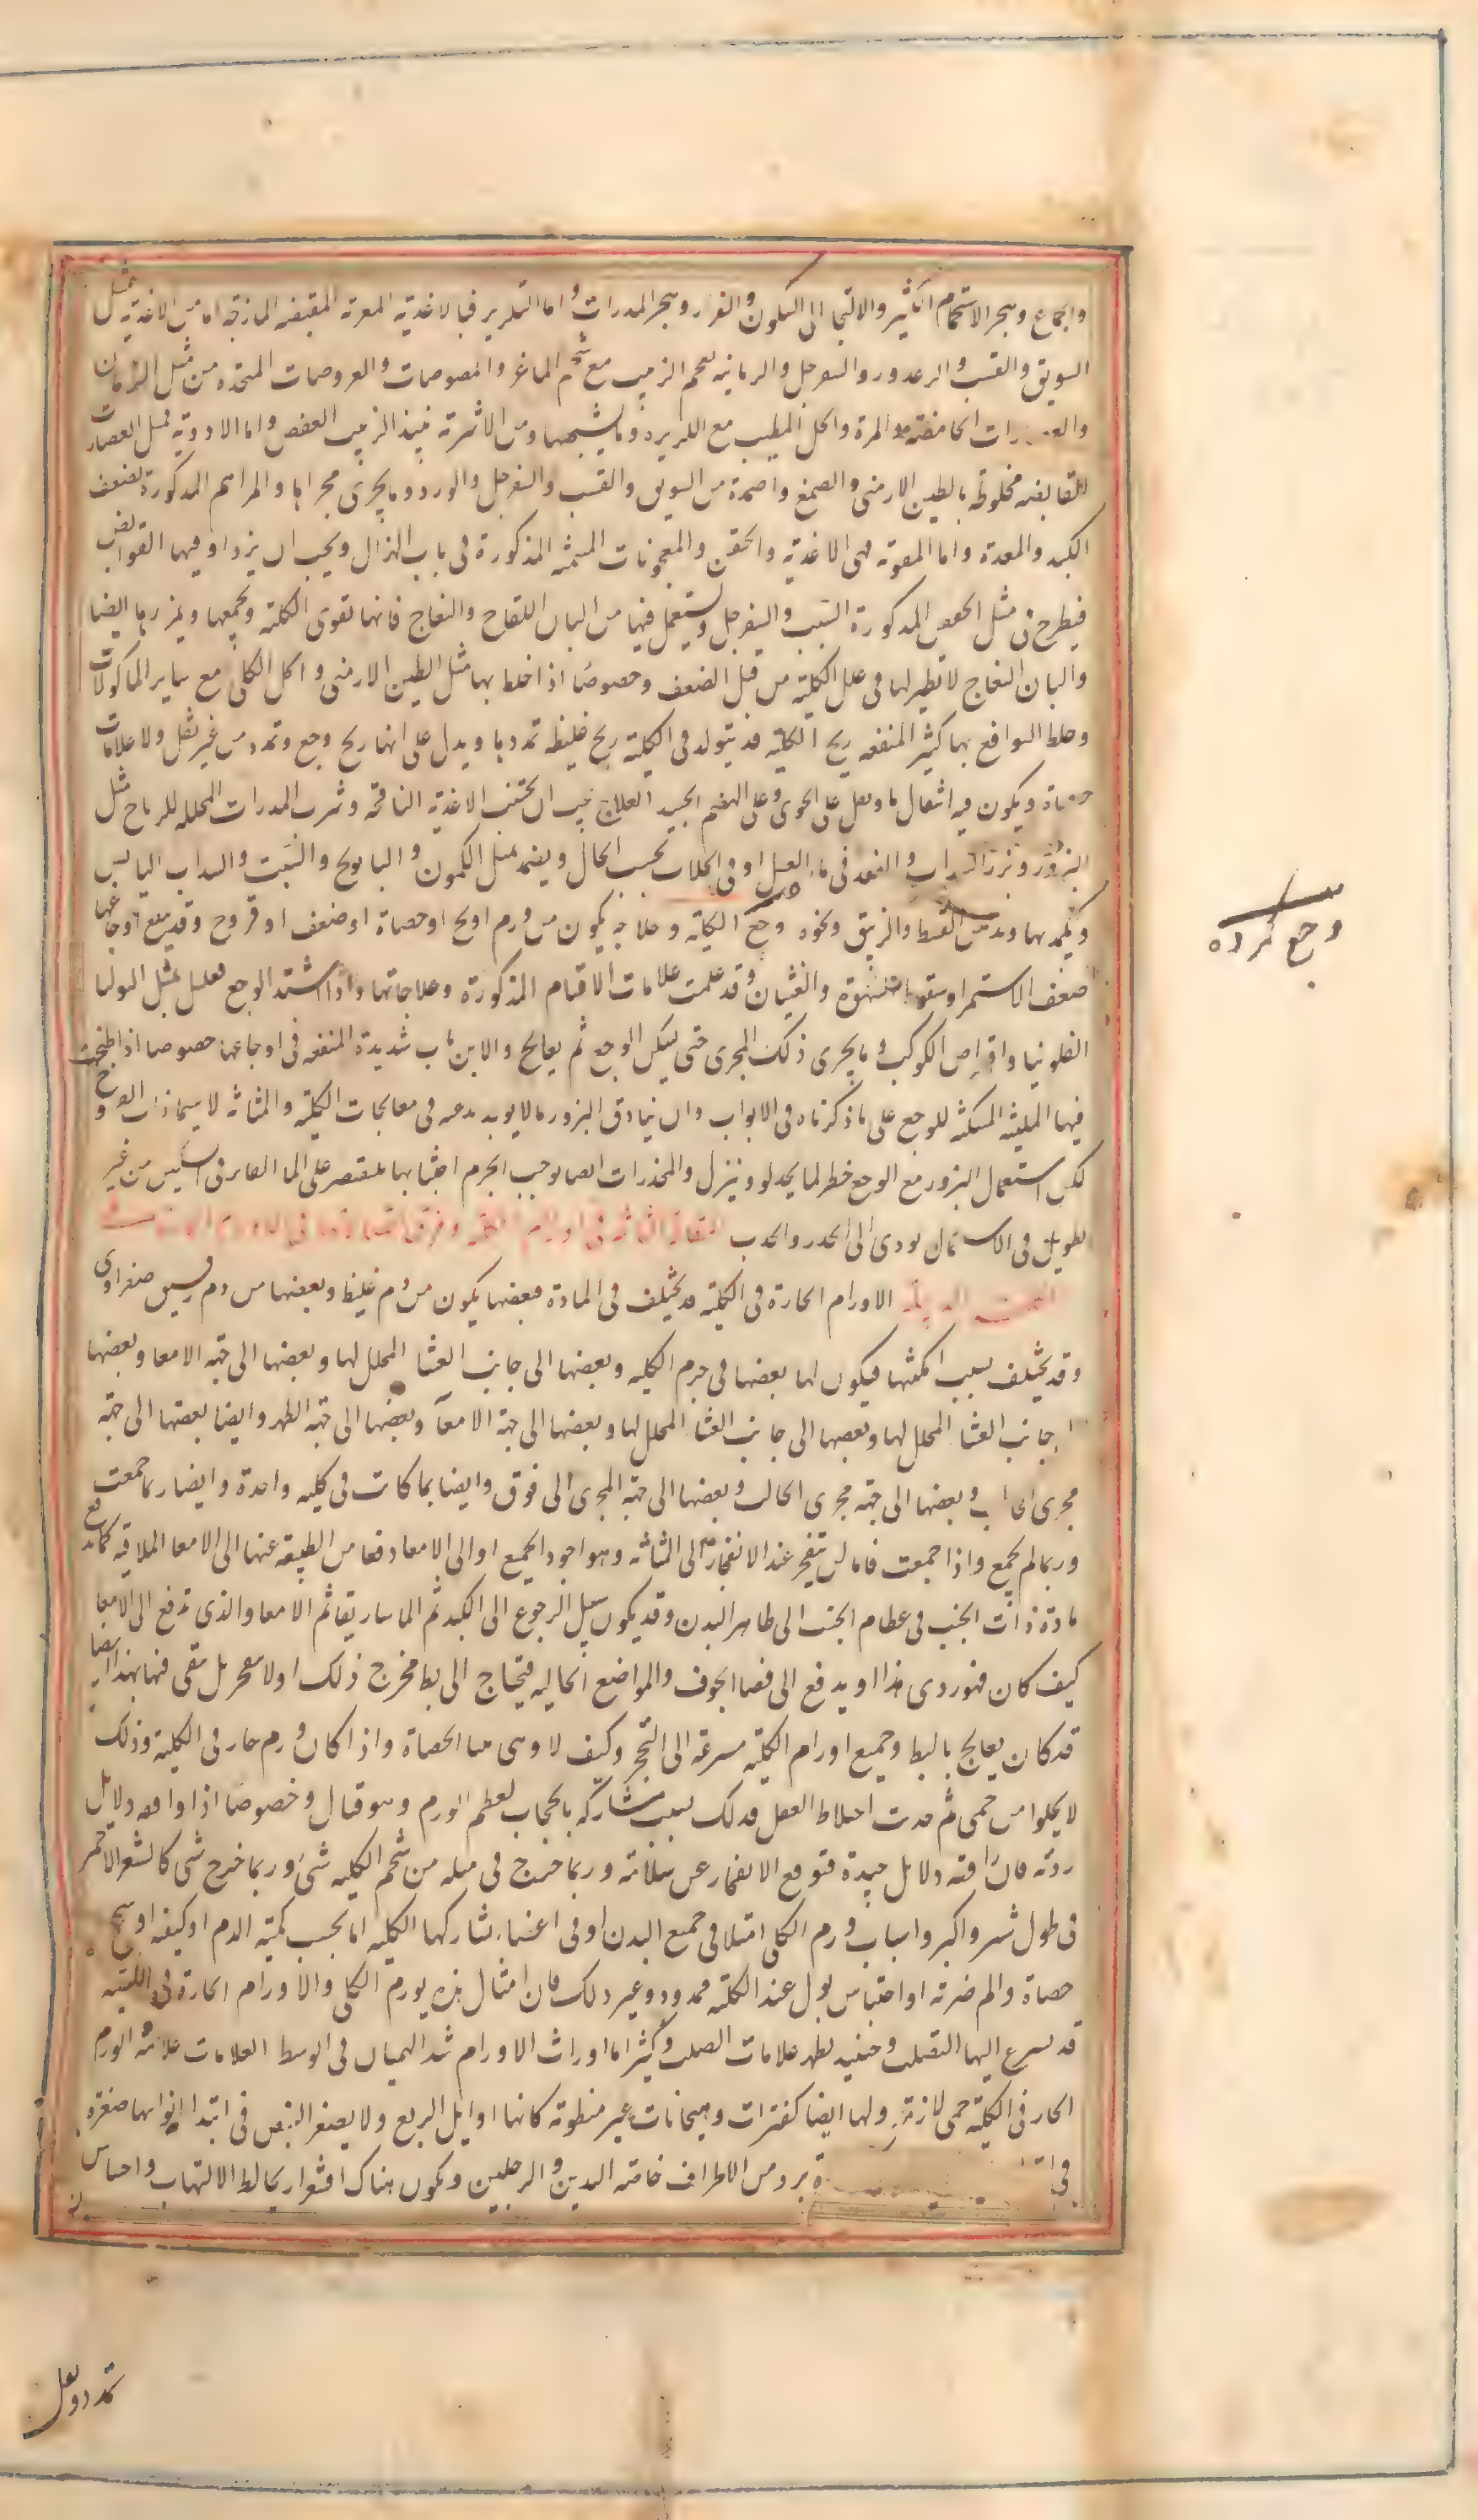 والجماع وهجر الاستحمام الكثير والالتجا الى السكون والقرار وهجر المدرات واما التلزيز فبالاغذية المغرية المقبضة اللزقة اما من الاغذية مثل
السويق والقسب والزعرور والسفرجل والرمانية بعجم الزبيب مع شحم الماعز والمصوصات والقريصات المتخذه من مثل الرمان
الحامضة المرة والخل المطيب مع الكزبره وما يشبهها ومن الاشربة نبيذ الزبيب العفص واما الادوية فمثل العصارات
القابضه مخلوطه بالطين الارمنى والصمغ واضمدة من السويق والقسب والسفرجل والورد وما يجرى مجراها والمراهم المذكورة لضعف
الكبد والمعدة واما المقوية فهى الاغذية والحقن والمعجونات المسمنه المذكورة فى باب الهزال ويجب ان يزداد فيها القوابض
فيطرح فى مثل الحقن المذكورة القسب والسفرجل ويستعمل فيها من البان اللقاح والنعاج فانها تقوى الكلية وتجمعها ويلززها ايضا
والبان النعاج لا نظير لها فى علل الكلية من قبل الضعف وخصوصا اذا خلط بها مثل الطين الارمنى واكل الكلى مع ساير الماكولات
وخلط النوافع بها كثير المنفعه ريح الكلية قد يتولد فى الكلية ريح غليظة تمددها ويدل على انها ريح وجع وتمدد من غير ثقل ولا علامات
حصاة ويكون فيه انتقال ما ويقل على الخوى وعلى الهضم الجيد العلاج يجب ان يجتنب الاغذية النافخة وشرب المدرات المحلله للرياح مثل
البزور وبزر السداب والفقد فى ماء العسل او فى الجلاب بحسب الحال ويضمد بمثل الكمون والبابونج والشبت والسداب اليابس
ويكمد بها وبدهن القسط والزنبق ونحوه وجع الكلية وعلاجه يكون من ورم او ريح او حصاة او ضعف او قروح وقد يتبع اوجاعها
ضعف الاستمرا وسقوط الشهوة والغثيان وقد علمت علامات الاقسام المذكورة وعلاجاتها واذا اشتد الوجع فعليك بمثل
الفلونيا واقراص الكوكب وما يجرى ذلك المجرى حتى يسكن الوجع ثم يعالج والابزنات شديدة المنفعه فى اوجاعها خصوصا اذا طبخت
فيها الملينة المسكنة للوجع على ما ذكرناه فى الابواب وان بنادق البزور مما لا بد منه فى معالجات الكلية والمثانة لا سيما ذات القروح
لكن استعمال البزور مع الوجع خطر لما يحدر وينزل والمخدرات ايضا يوجب الجرم اجتنابها فلتقتصر على الما الفاتر فى استين من غير
تطويل فى الاستنقاع يودى الى الخدر والجذب المقالة الثانية فى اورام الكلية وتفرق اتصالها
الاورام الحارة فى الكلية قد يختلف فى المادة فبعضها يكون من دم غليظ وبعضها من دم رقيق صفراوى
وقد يختلف بسبب امكنتها فيكون لها بعضها فى جرم الكلية وبعضها الى جانب الغشا المجلل لها وبعضها الى جهة الامعا وبعضها
جانب الغشا المجلل لها وبعضها الى جانب الغشا المجلل لها وبعضها الى جهة الامعآ وبعضها الى جهة الظهر وايضا بعضها الى جهة
مجرى وبعضها الى جهة مجرى الحالب وبعضها الى جهة المجرى الى فوق وايضا بما كانت فى كلية واحدة وايضا ربما جمعت
وربما لم يجمع واذا جمعت فاما ان ينفجر عند الانفجار الى المثانة وهو اجود الجميع او الى الامعا دفعا من الطبيعة عنها الى الامعا الملاقية كما يدفع
مادة ذات الجنب فى عظام الجنب الى ظاهر البدن وقد يكون سبيل الرجوع الى الكبد ثم الماساريقا ثم الامعا والذى يدفع الى الامعا
كيف كان فهو ردى هذا او يدفع الى فضا الجوف والمواضع الخالية فيحتاج الى بط مخرج ذلك او لا ينفجر بل يبقى فيها بهذا ايضا
قد كان يعالج بالبط وجميع اورام الكلية مسرعة الى التحجر وكيف لا وهى مما الحصاة واذا كان ورم حار فى الكلية وذلك
لا يخلوا من حمى ثم حدث اختلاط العقل فذلك بسبب مشاركة بالحجاب لعظم الورم وهو قتال وخصوصا اذا وافقه دلايل
ردية فان رافقته دلايل جيدة فتوقع الانفجار عن سلامة وربما خرج فى مثله من شحم الكلية شى وربما خرج شى كالشعر الاحمر
فى طول شبر واكبر واسباب ورم الكلى امتلا فى جميع البدن او فى اعضاء تشاركها الكلية اما بحسب كمية الدم او كيفيه او سحج
حصاة والم ضربة او احتباس بول عند الكلية ممدود وغير ذلك فان امثال هذه يورم الكلى والاورام الحارة فى الكلية
قد يسرع اليها التصلب وحينئذ يظهر علامات الصلب وكثيرا ما اوراث الاورام شد الهميان فى الوسط العلامات علامة الورم
الحار فى الكلية حمى لازمة ولها ايضا كفترات وهيجانات غير منظومة كانها اوايل الربع ولا يصغر النبض فى ابتدا نوابها صغره
برد من الاطراف خاصة اليدين والرجلين ويكون هناك اقشعرار يخالط الالتهاب واحساس
تمدد وثقل
وجع كرده